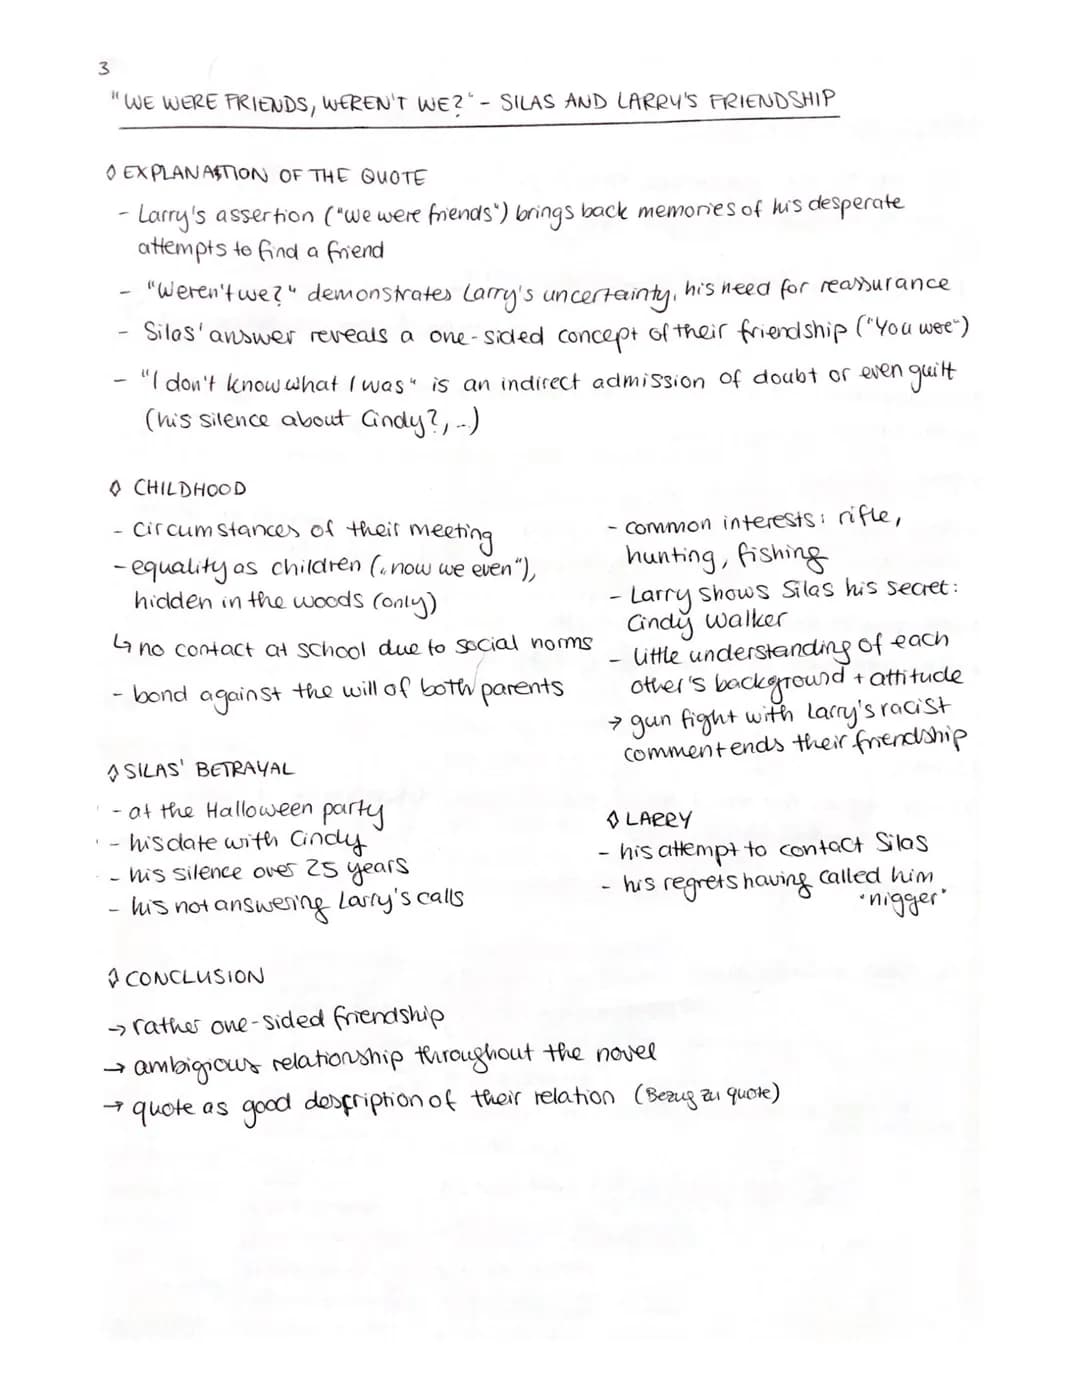 3
"WE WERE FRIENDS, WEREN'T WE?" - SILAS AND LARRY'S FRIENDSHIP
◊ EXPLANATION OF THE QUOTE
- Larry's assertion ("we were friends") brings back memories of his desperate
attempts to find a friend
- "Weren't we?" demonstrates Larry's uncertainty, his need for reassurance
- Silas' answer reveals a one-sided concept of their friendship ("You wee")
- "I don't know what I was" is an indirect admission of doubt or even guilt
(his silence about Cindy?, ...)
◊ CHILDHOOD
- circumstances of their meeting
- equality as children („now we even"),
hidden in the woods (only)
↳ no contact at school due to social norms
- bond against the will of both parents
- common interests: rifle,
hunting, fishing
- Larry shows Silas his secret:
Cindy Walker
- little understanding of each
other's background + attitude
→ gun fight with Larry's racist
comment ends their friendship
◊ SILAS' BETRAYAL
- at the Halloween party
- his date with Cindy
- his silence over 25 years
- his not answering Larry's calls
◊ LARRY
- his attempt to contact Silas
- his regrets having called him
"nigger"
◊ CONCLUSION
→ rather one-sided friendship
→ ambigious relationship throughout the novel
→ quote as good description of their relation (Bezug zu quote)